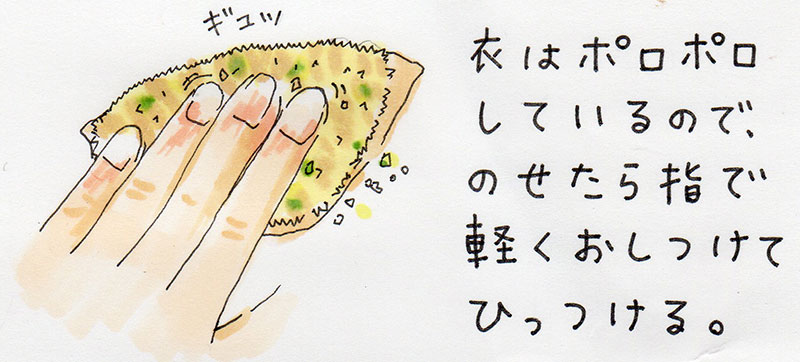 ギュッ
衣はポロポロ
しているので、
のせたら指で
軽くおしつけて
ひっつける。